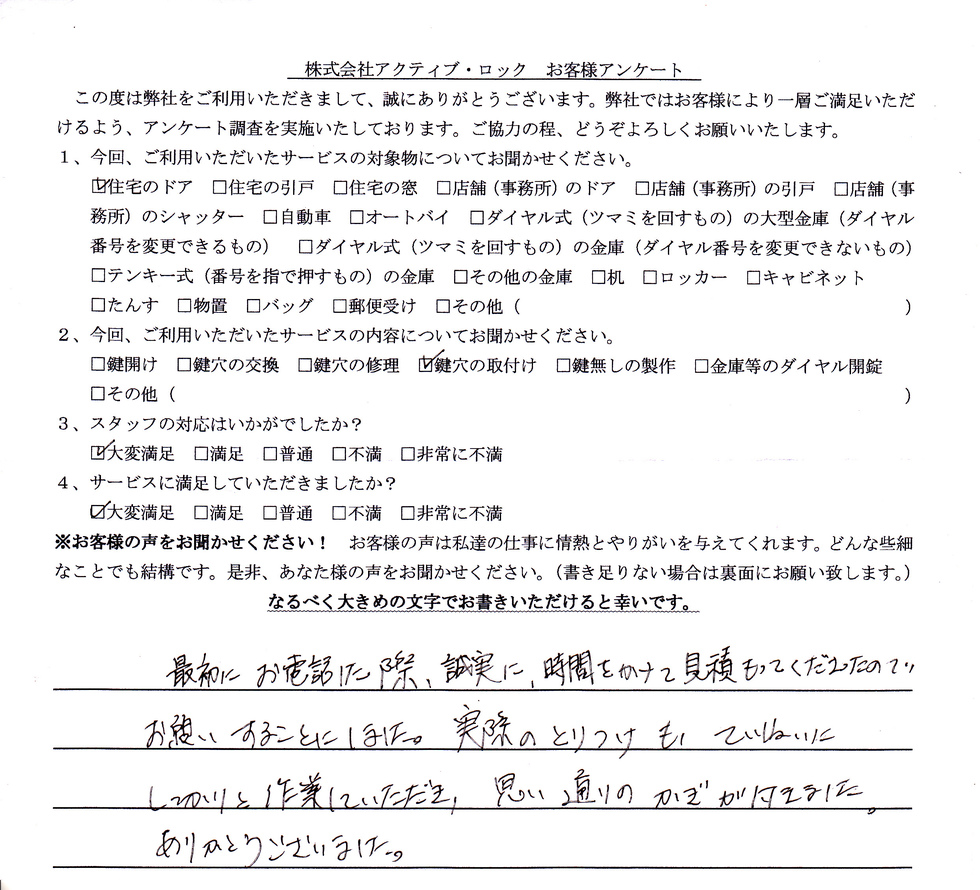 株式会社アクティブ・ロック　お客様アンケート
この度は弊社をご利用いただきまして、誠にありがとうございます。弊社ではお客様により一層ご満足いただ
けるよう、アンケート調査を実施いたしております。ご協力の程、どうぞよろしくお願いいたします。
１、今回、ご利用いただいたサービスの対象物についてお聞かせください。
☑住宅のドア　□住宅の引戸　□住宅の窓　□店舗（事務所）のドア　□店舗（事務所）の引戸　□店舗（事
務所）のシャッター　□自動車　□オートバイ　□ダイヤル式（ツマミを回すもの）の大型金庫（ダイヤル
番号を変更できるもの）　□ダイヤル式（ツマミを回すもの）の金庫（ダイヤル番号を変更できないもの）
□テンキー式（番号を指で押すもの）の金庫　□その他の金庫　□机　□ロッカー　□キャビネット
□たんす　□物置　□バッグ　□郵便受け　□その他（　　　　　　　　　　　　　　　　　　　　　　）
２、今回、ご利用いただいたサービスの内容についてお聞かせください。
□鍵開け　□鍵穴の交換　□鍵穴の修理　☑鍵穴の取付け　□鍵無しの製作　□金庫等のダイヤル開錠
□その他（　　　　　　　　　　　　　　　　　　　　　　　　　　　　　　　　　　　　　　　　　　）
３、スタッフの対応はいかがでしたか？
☑大変満足　□満足　□普通　□不満　□非常に不満
４、サービスに満足していただきましたか？
☑大変満足　□満足　□普通　□不満　□非常に不満
※お客様の声をお聞かせください！　お客様の声は私達の仕事に情熱とやりがいを与えてくれます。どんな些細
なことでも結構です。是非、あなた様の声をお聞かせください。（書き足りない場合は裏面にお願い致します。）
なるべく大きめの文字でお書きいただけると幸いです。
最初に お電話した際、誠実に、時間をかけて見積もってくださったので
お願いすることにしました。実際のとりつけも、ていねいに
しっかりと作業していただき、思い通りのかぎが付きました。
ありがとうございました。